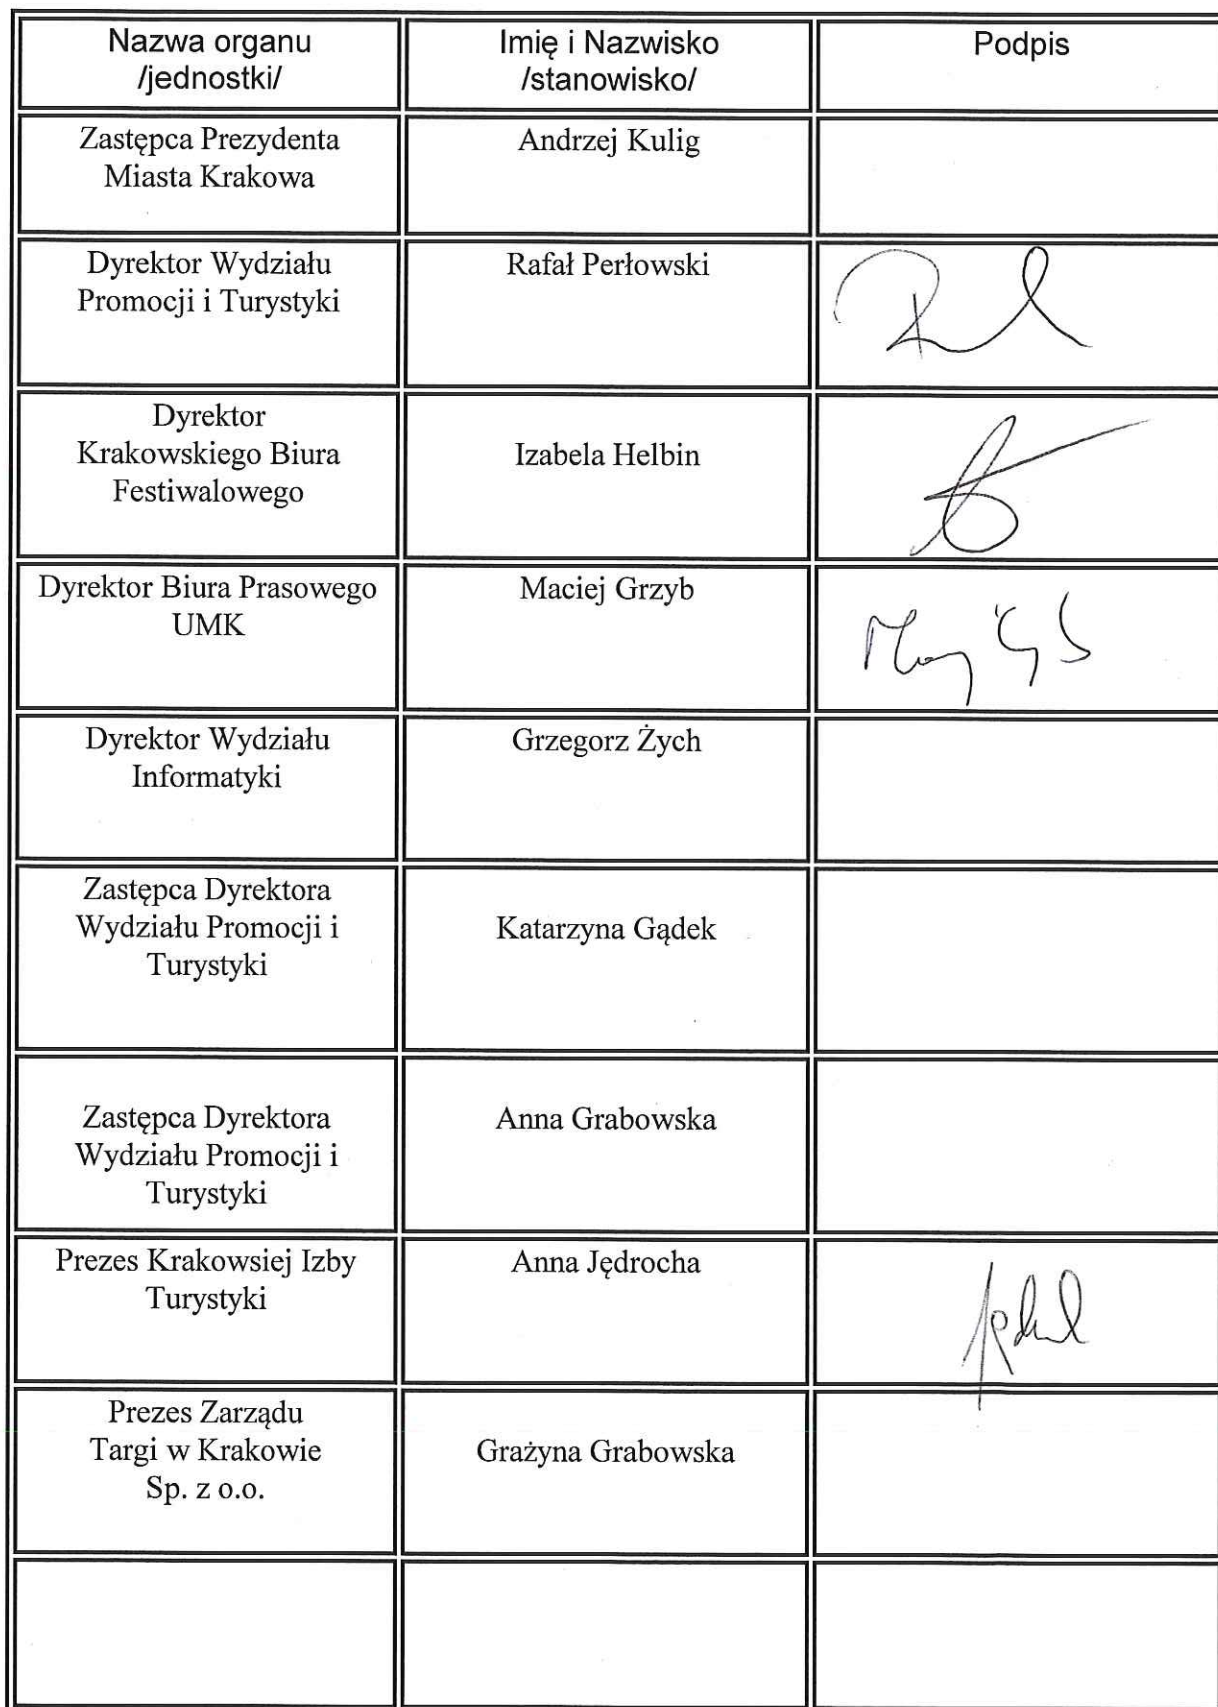 Nazwa organu
/jednostki/
Imię i Nazwisko
/stanowisko/
Podpis
Zastępca Prezydenta
Miasta Krakowa
Andrzej Kulig
Dyrektor Wydziału
Promocji i Turystyki
Rafał Perłowski
Dyrektor
Krakowskiego Biura
Festiwalowego
Izabela Helbin
Dyrektor Biura Prasowego
UMK
Maciej Grzyb
Dyrektor Wydziału
Informatyki
Grzegorz Żych
Zastępca Dyrektora
Wydziału Promocji i
Turystyki
Katarzyna Gądek
Zastępca Dyrektora
Wydziału Promocji i
Turystyki
Anna Grabowska
Prezes Krakowsiej Izby
Turystyki
Anna Jędrocha
Prezes Zarządu
Targi w Krakowie
Sp. z o.o.
Grażyna Grabowska